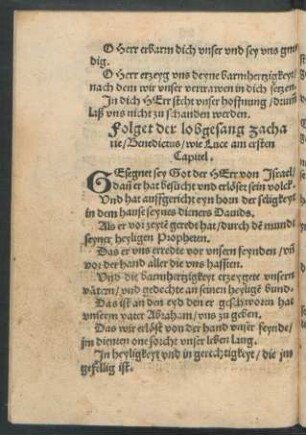 O Herr erbarm dich vnser vnd sey vns gne
dig.
O Herr erzeyg vns deyne barmhertzigkeyt/
nach dem wir vnser vertrawen in dich setzen.
In dich HErr steht vnser hoffnung / drumb
laß vns nicht zu schanden werden.
Folget der lobgesang zacha
rie/Benedictus/wie Luce am ersten
Capitel.
GEsegnet sey Got der HErr von Israel/
dañ er hat besucht vnd erlöset sein volck.
Vnd hat auffgericht eyn horn der seligkeyt
in dem hause seynes dieners Dauids.
Als er vor zeytẽ geredt hat/durch dẽ mund
seyner heyligen Propheten.
Das er vns erredte vor vnsern feynden/vñ
vor der hand aller die vns hassten.
Vnd die barmhertzigkeyt erzeygete vnsern
vätern/vnd gedechte an seinen heyligẽ bund.
Das ist an den eyd den er geschworen hat
vnserm vater Abraham/vns zu geben.
Das wir erlöst von der hand vnser feynde/
jm dienten one forcht vnser leben lang.
In heyligkeyt vnd in gerechtigkeyt/die jm
gefellig ist.